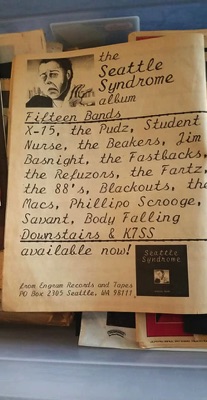 the
Seattle
Syndrome
album
Fifteen Bands
X-15, the Pudz, Student
Nurse, the Beakers, Jim
Basnight, the Fastbacks,
the Refuzors, the Fartz,
the 88's, Blackouts, the
Macs, Phillipo Scrooge,
Savant, Body Falling
Downstairs & K7SS
available now!
Seattle
Syndrome
from Engram Records and Tapes
PO Box 2305 Seattle, WA 98111